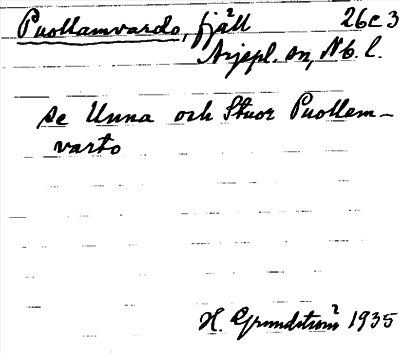 Puollamvardo, fjäll 26c3
Arjepl. sn, Nb. l.
se Unna och Stuor Puollam-
varto
H. Grundström 1935